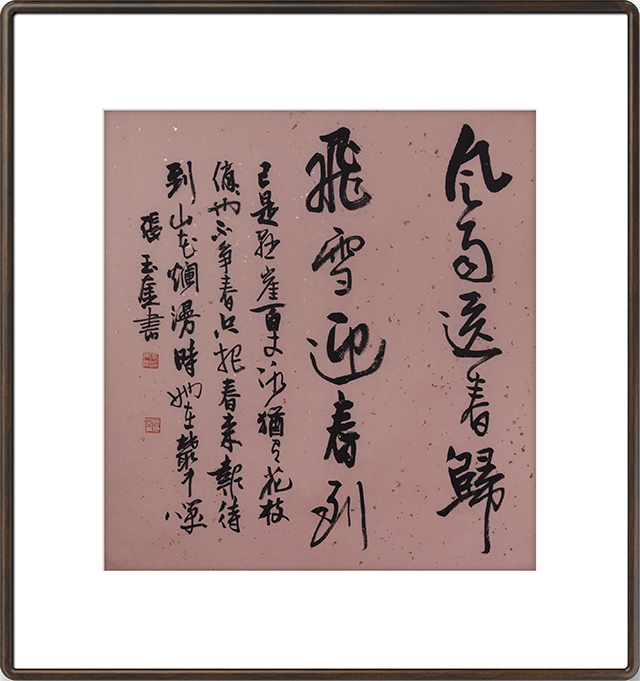 风雨送春歸
飛雪迎春到
已是懸崖百丈冰猶有花枝
俏也不爭春只把春來報待
到山花爛漫時她在叢中笑
張玉書